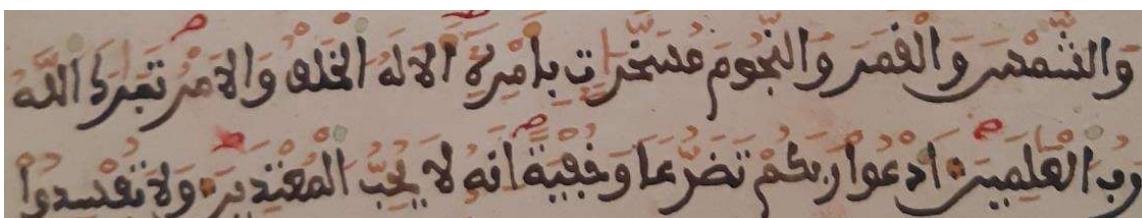 وَالشَّمْسَ وَالْقَمَرَ وَالنُّجُومَ مُسَخَّرَاتٍ بِأَمْرِهِ أَلَا لَهُ الْخَلْقُ وَالْأَمْرُ تَبَارَكَ اللَّهُ
رَبُّ الْعَٰلَمِينَ ادْعُوا رَبَّكُمْ تَضَرُّعًا وَخُفْيَةً إِنَّهُ لَا يُحِبُّ الْمُعْتَدِينَ وَلَا تُفْسِدُوا